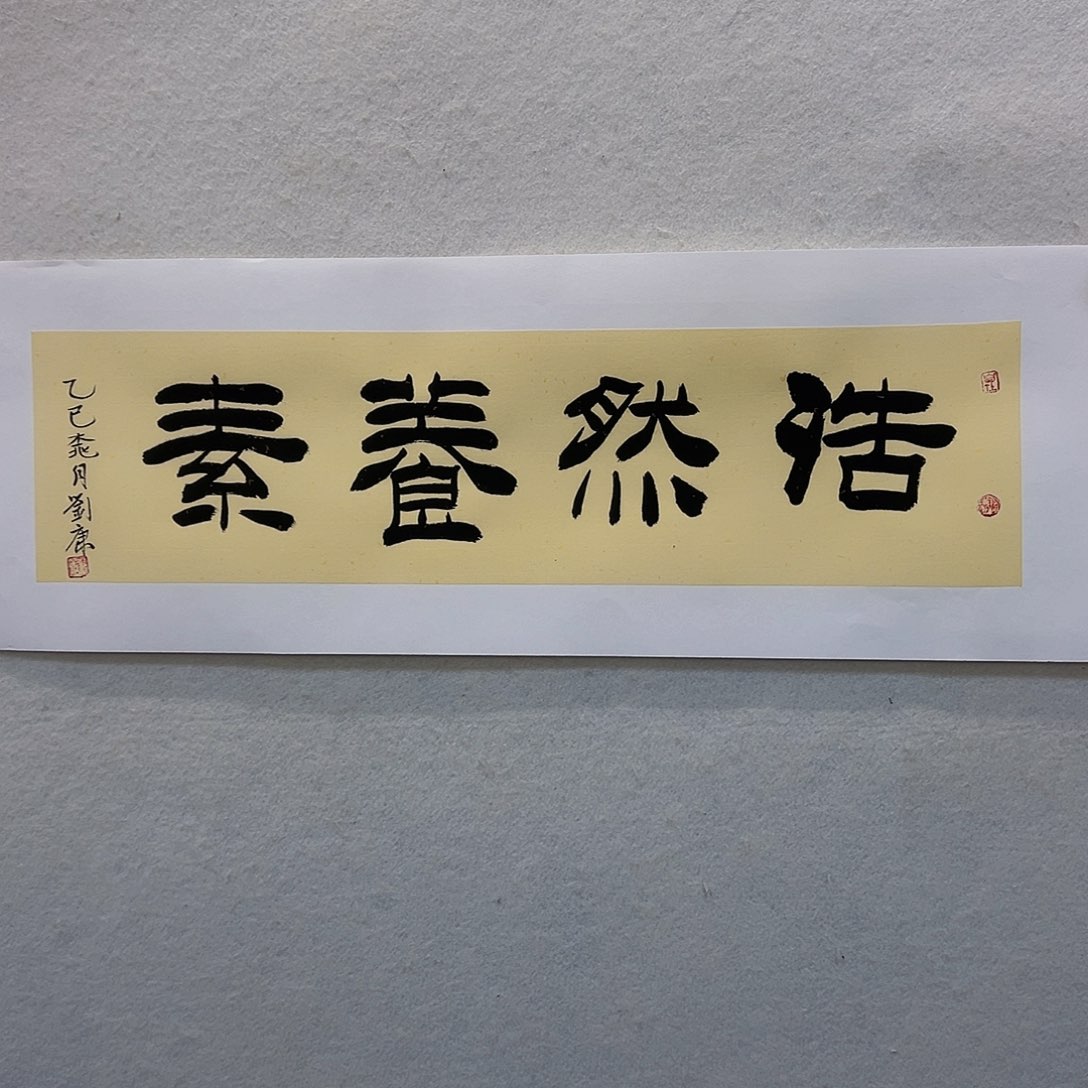 浩然養素
乙巳桃月劉康